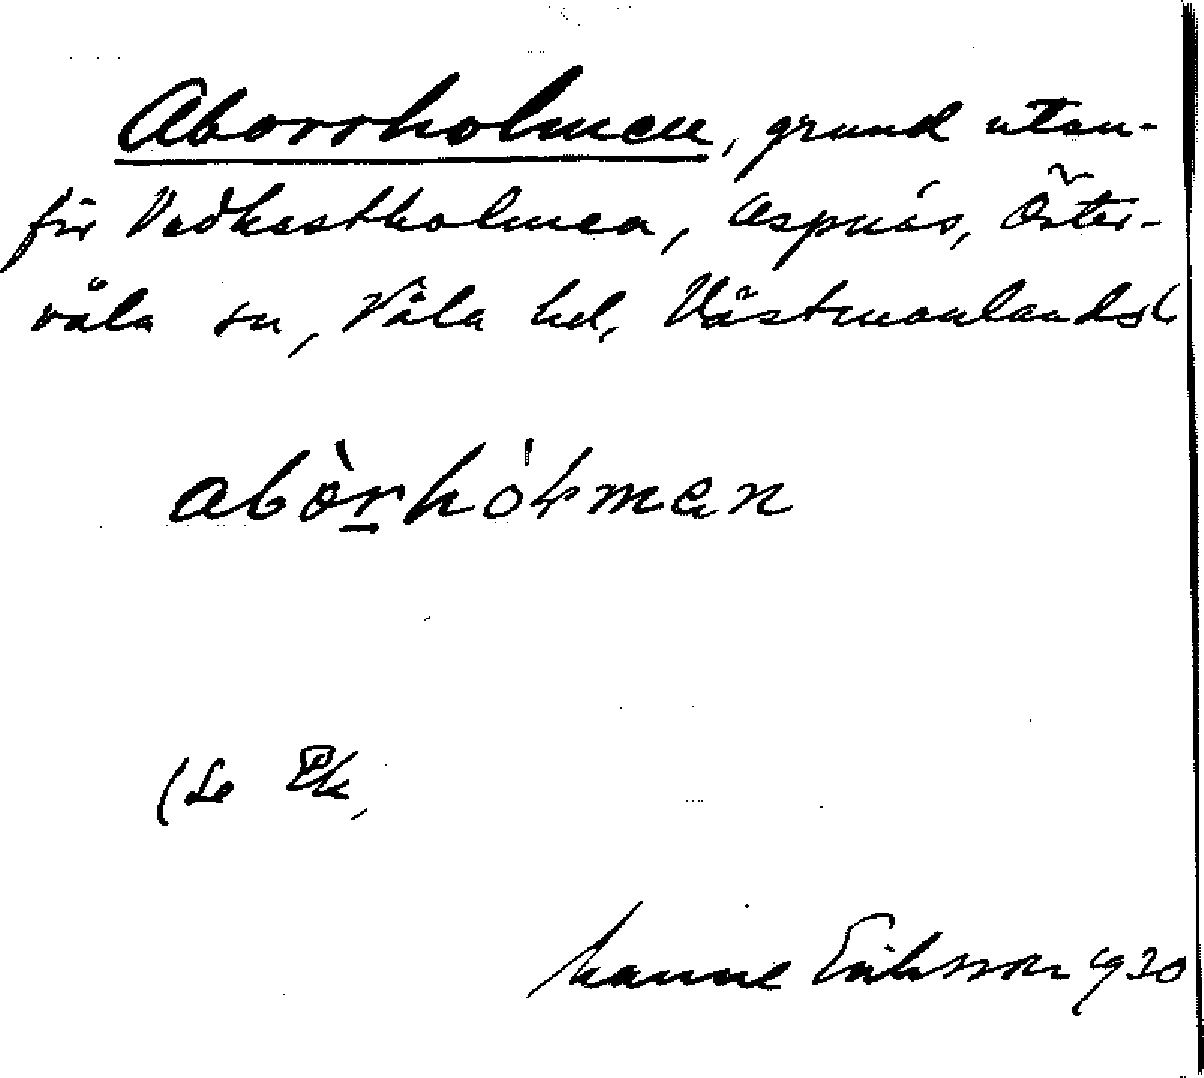 Aborrholmen, grund utan-
för Vedkastholmen, Aspnäs, Öster-
våla sn, Våla hd, Västmanlands l
abòrhólmen
(Se Ek,
Manne Eriksson 1930